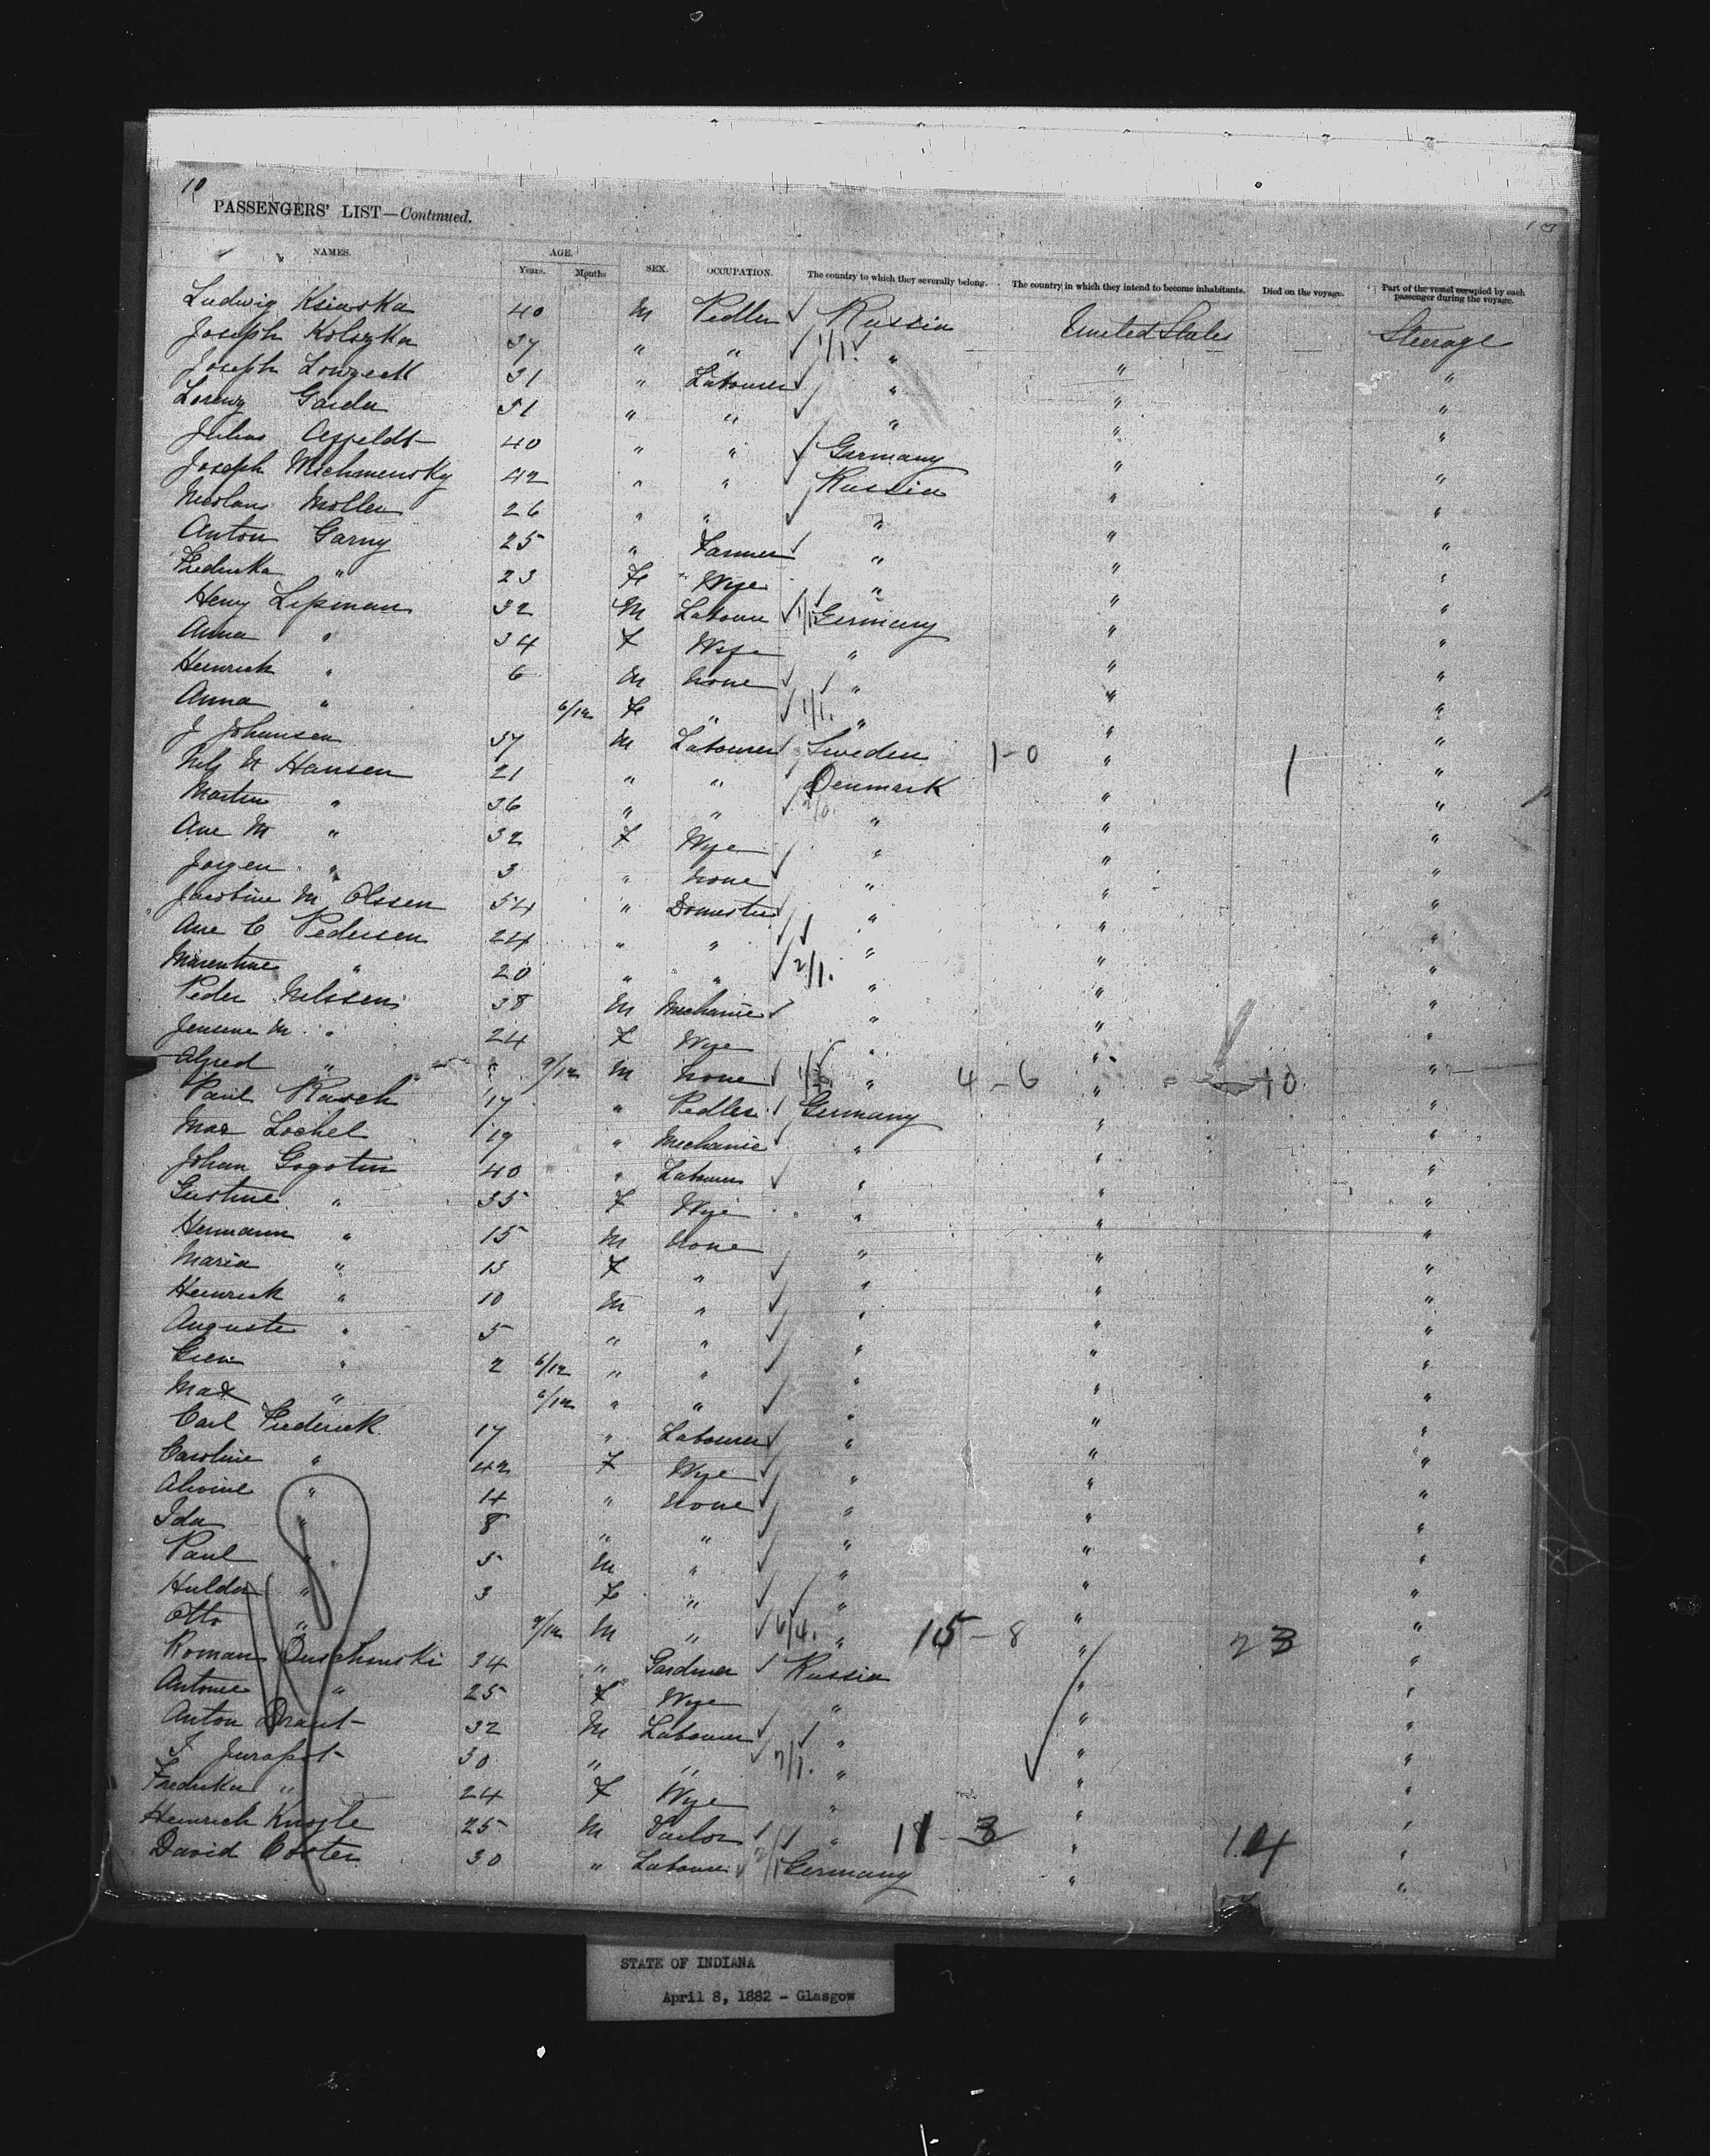 10
PASSENGERS' LIST—Continued.
NAMES. AGE. Years. Months SEX. OCCUPATION. The country to which they severally belong. The country in which they intend to become inhabitants. Died on the voyage. Part of the vessel occupied by each passenger during the voyage.
Ludwig 40 M Pedler Russia United States Steerage
Joseph Kolszka 37 " " 1/1. " " "
Joseph 31 " Labourer " " "
51 " " " " "
Julius 40 " " Germany " "
Joseph 42 " " Russia " "
Moller 26 " " " " "
Anton Garny 25 " Farmer " " "
Frederika " 23 Fe Wife " " "
Henry Lipman 32 M Labourer 1/1 Germany " "
Anna " 34 F Wife " " "
Heinrich " 6 M None " " "
Anna " 6/12 Fe " 1/1. " " "
J Johansen 37 M Labourer Sweden 1-0 " 1 "
Nils N Hansen 21 " " Denmark " "
Martin " 36 " " " " "
Ane M " 32 F Wife " " "
Jorgen " 3 " None " " "
Jacobine M Olssen 54 " Domestic " " "
Ane C Pedersen 24 " " " " "
Marentine " 20 " " 2/1. " " "
Peder Nilssen 38 M Mechanic " " "
Jensine M " 24 F Wife " " "
Alfred " 9/12 M None " 4-6 " 10 "
Paul Rasch 17 " Pedler Germany " "
Max Lochel 19 " Mechanic " " "
Johan Gogotin 40 " Labourer " " "
Gustine " 35 F Wife " " "
Hermann " 15 M None " " "
Maria " 13 F " " " "
Heinrich " 10 M " " " "
Auguste " 5 " " " " "
" 2 6/12 " " " " "
Max " 6/12 " " " " "
Carl Frederick 17 " Labourer " " "
Caroline " 42 F Wife " " "
Alvine " 14 " None " " "
Ida " 8 " " " " "
Paul " 5 M " " " "
Hulda " 3 Fe " " " "
Otto " 9/12 M " 6/4. " 15-8 " 23 "
Roman 34 " Gardiner Russia " "
Antonie " 25 F Wife " " "
Anton Draut 32 M Labourer " " "
30 " " " " "
Frederika " 24 F Wife " " "
Heinrich 25 M Tailor " 11-3 " 14 "
David 30 " Labourer Germany " "
STATE OF INDIANA
April 8, 1882 - Glasgow